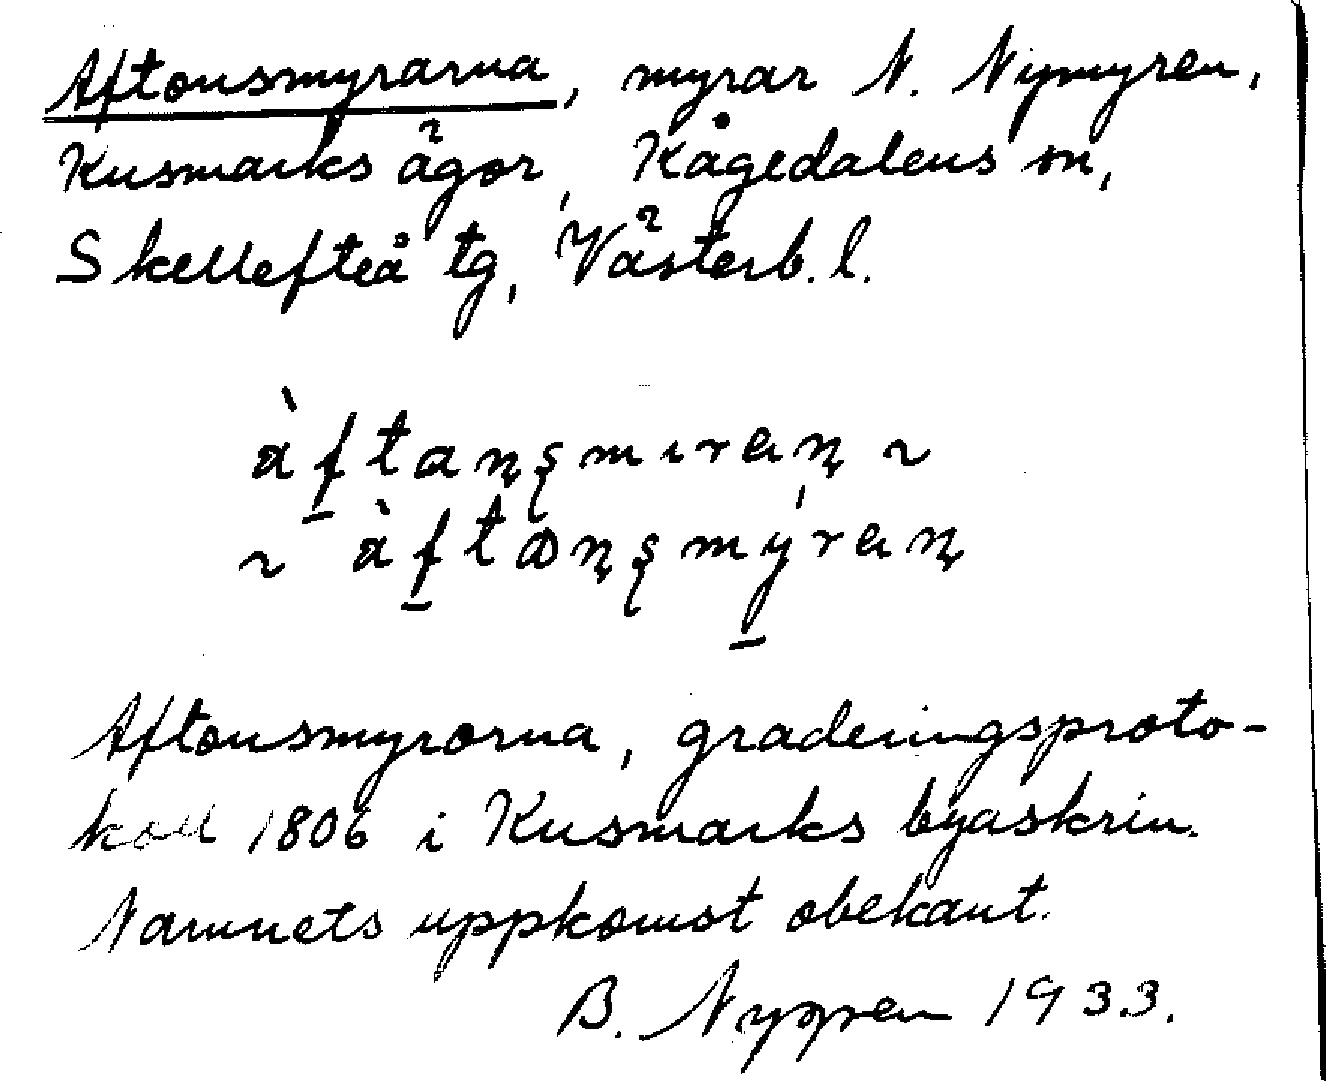 Aftonsmyrarna, myrar N. Nymyren,
Kusmarks ägor, Kågedalens sn,
Skellefteå tg, Västerb. l.
Aftonsmyrorna, graderingsproto-
koll 1806 i Kusmarks byaskrin.
Namnets uppkomst obekant.
B. Nygren 1933.